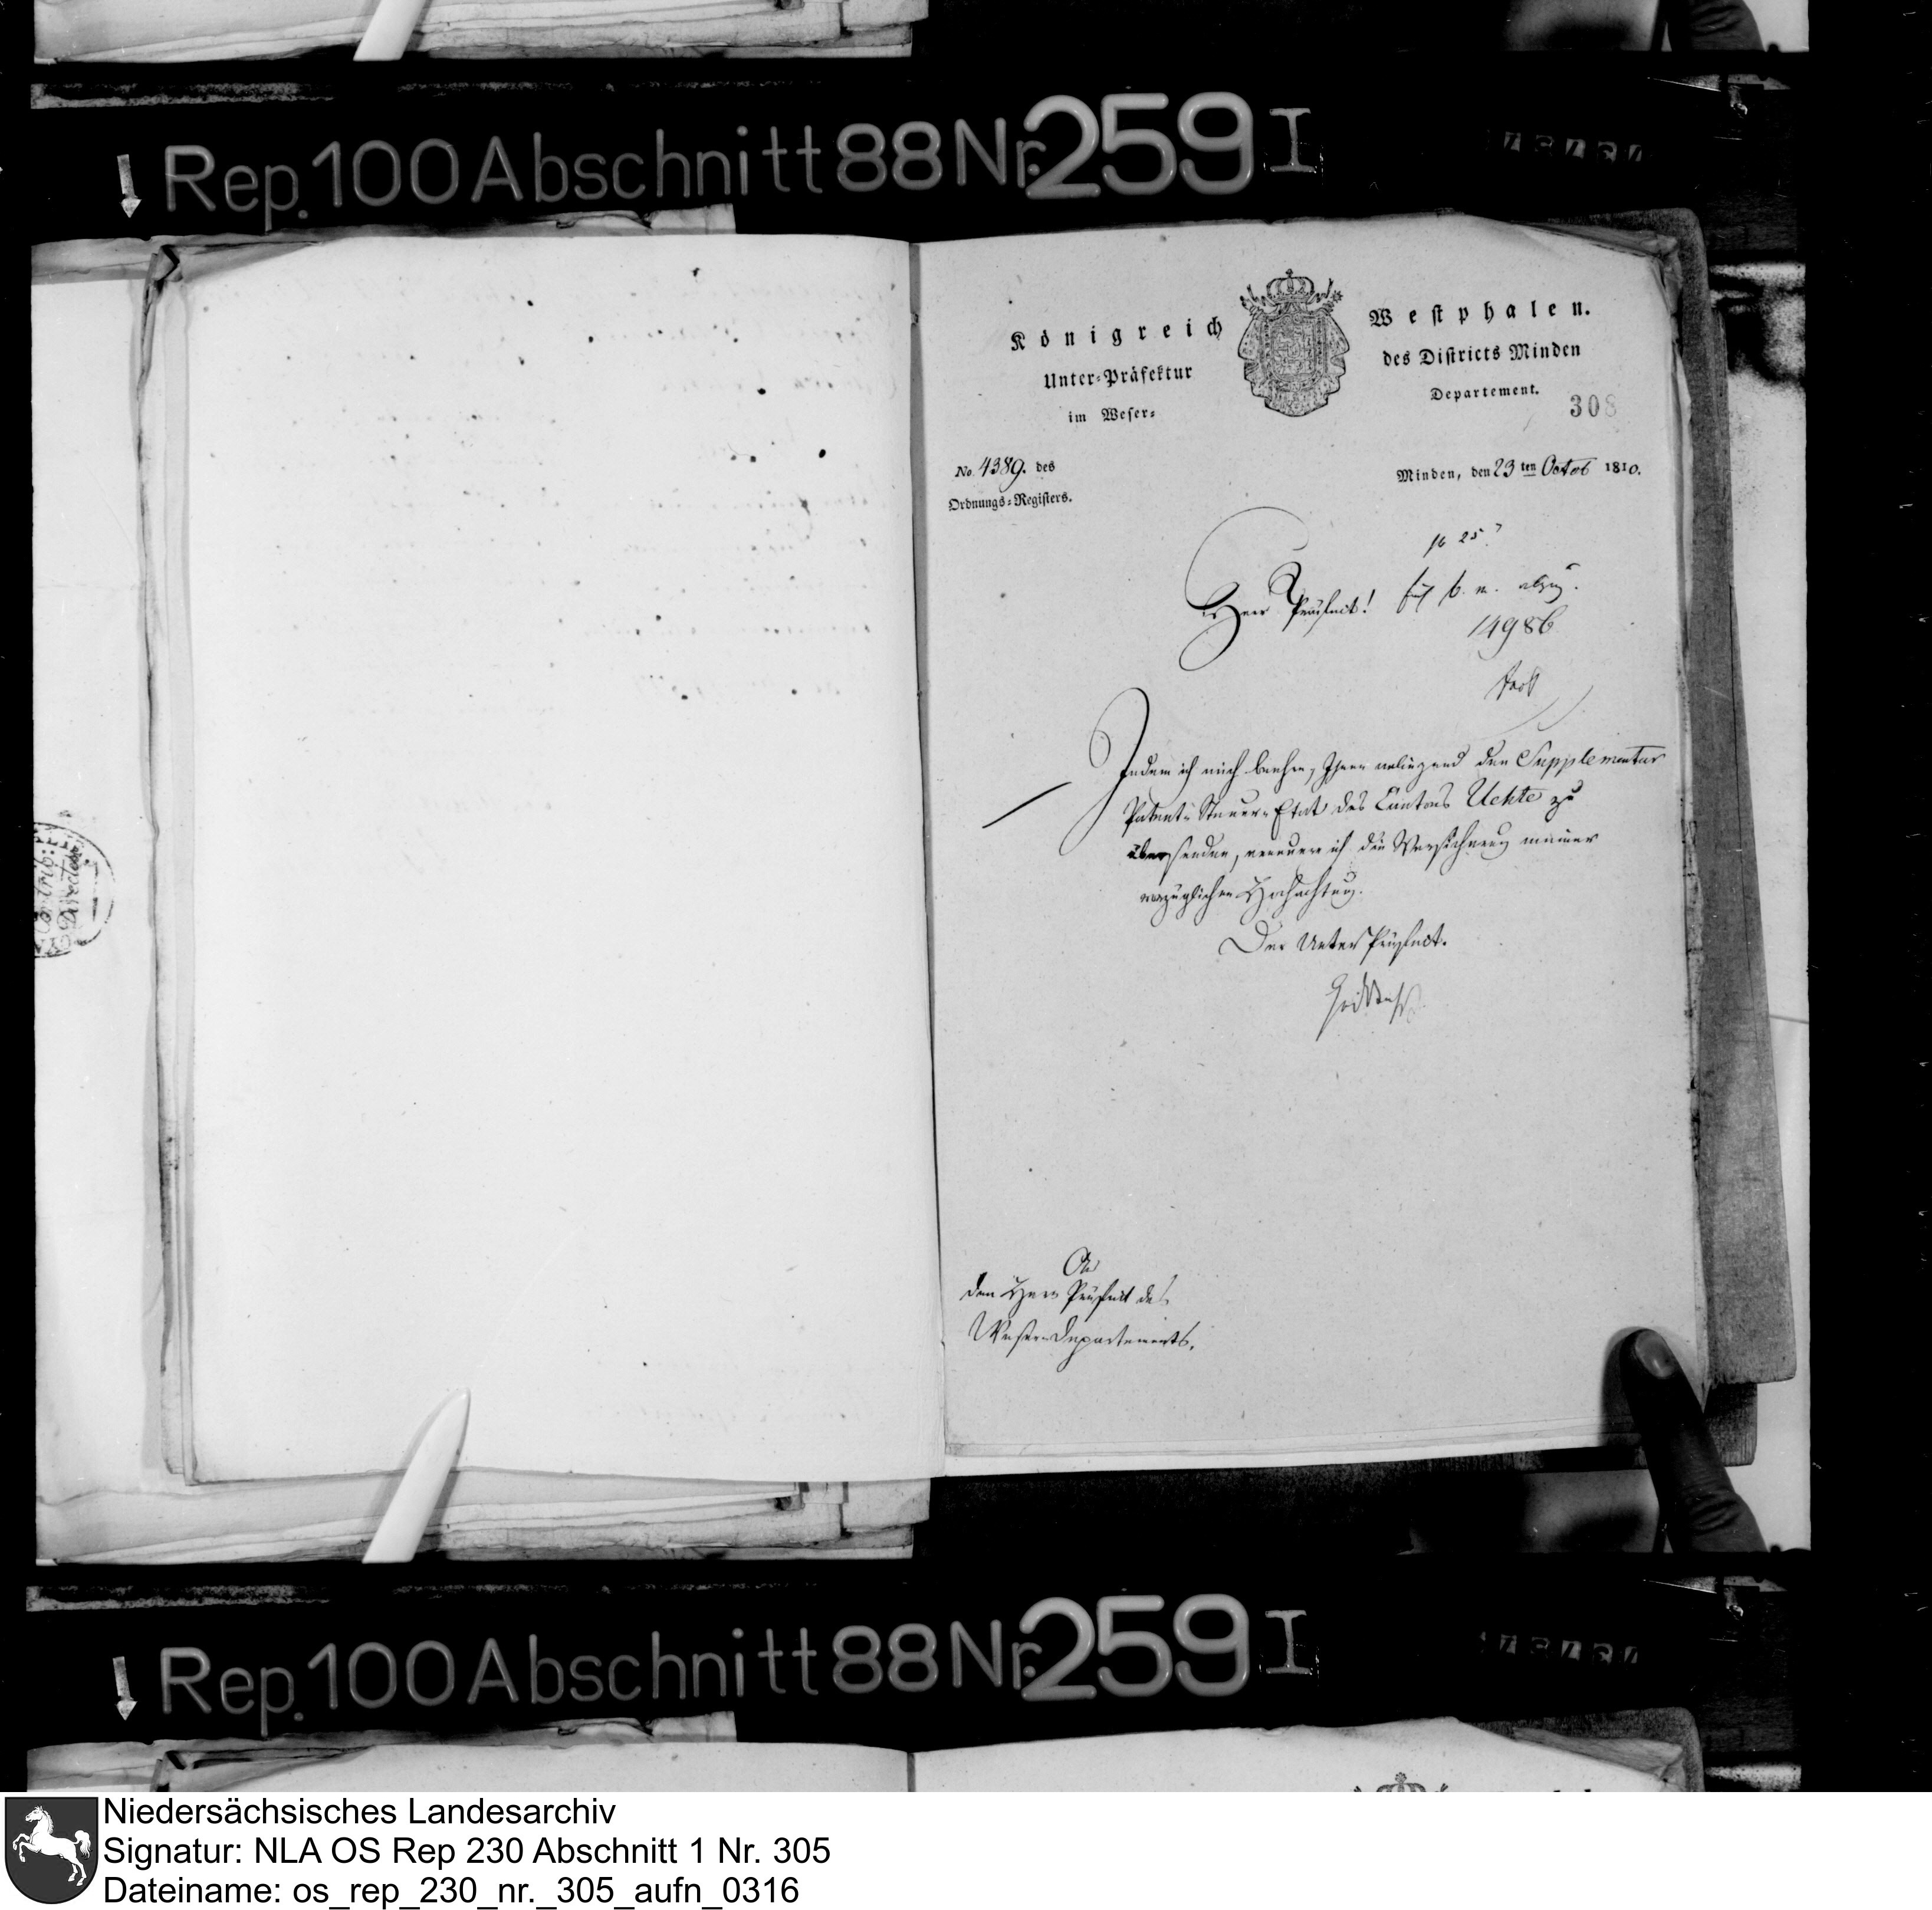 Rep. 100 Abschnitt 88 Nr. 259 I
Königreich Westphalen.
Unter-Präfektur des Districts Minden
im Weser- Departement.
308
No. 4389. des
Ordnungs-Registers.
Minden, den 23 ten Octob 1810.
Herr Präfect!
14986
Indem ich mich beehre, Ihnen anliegend den Supplementar
Patent-Steuer-Etat des Cantons Uchte zu
übersenden, erneuere ich die Versicherung meiner
vorzüglichen Hochachtung.
Der Unter Präfect.
An
den Herrn Präfect des
Weser-Departements.
Contrib:
Direction
Rep. 100 Abschnitt 88 Nr. 259 I
Niedersächsisches Landesarchiv
Signatur: NLA OS Rep 230 Abschnitt 1 Nr. 305
Dateiname: os_rep_230_nr._305_aufn_0316